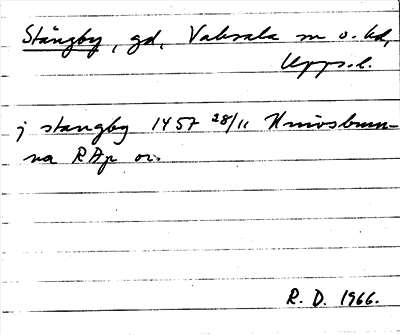 Stångby, gd, Vaksala sn o. hd,
Upps. l.
j stangby 1457 28/11
na RAp or.
R. D. 1966.